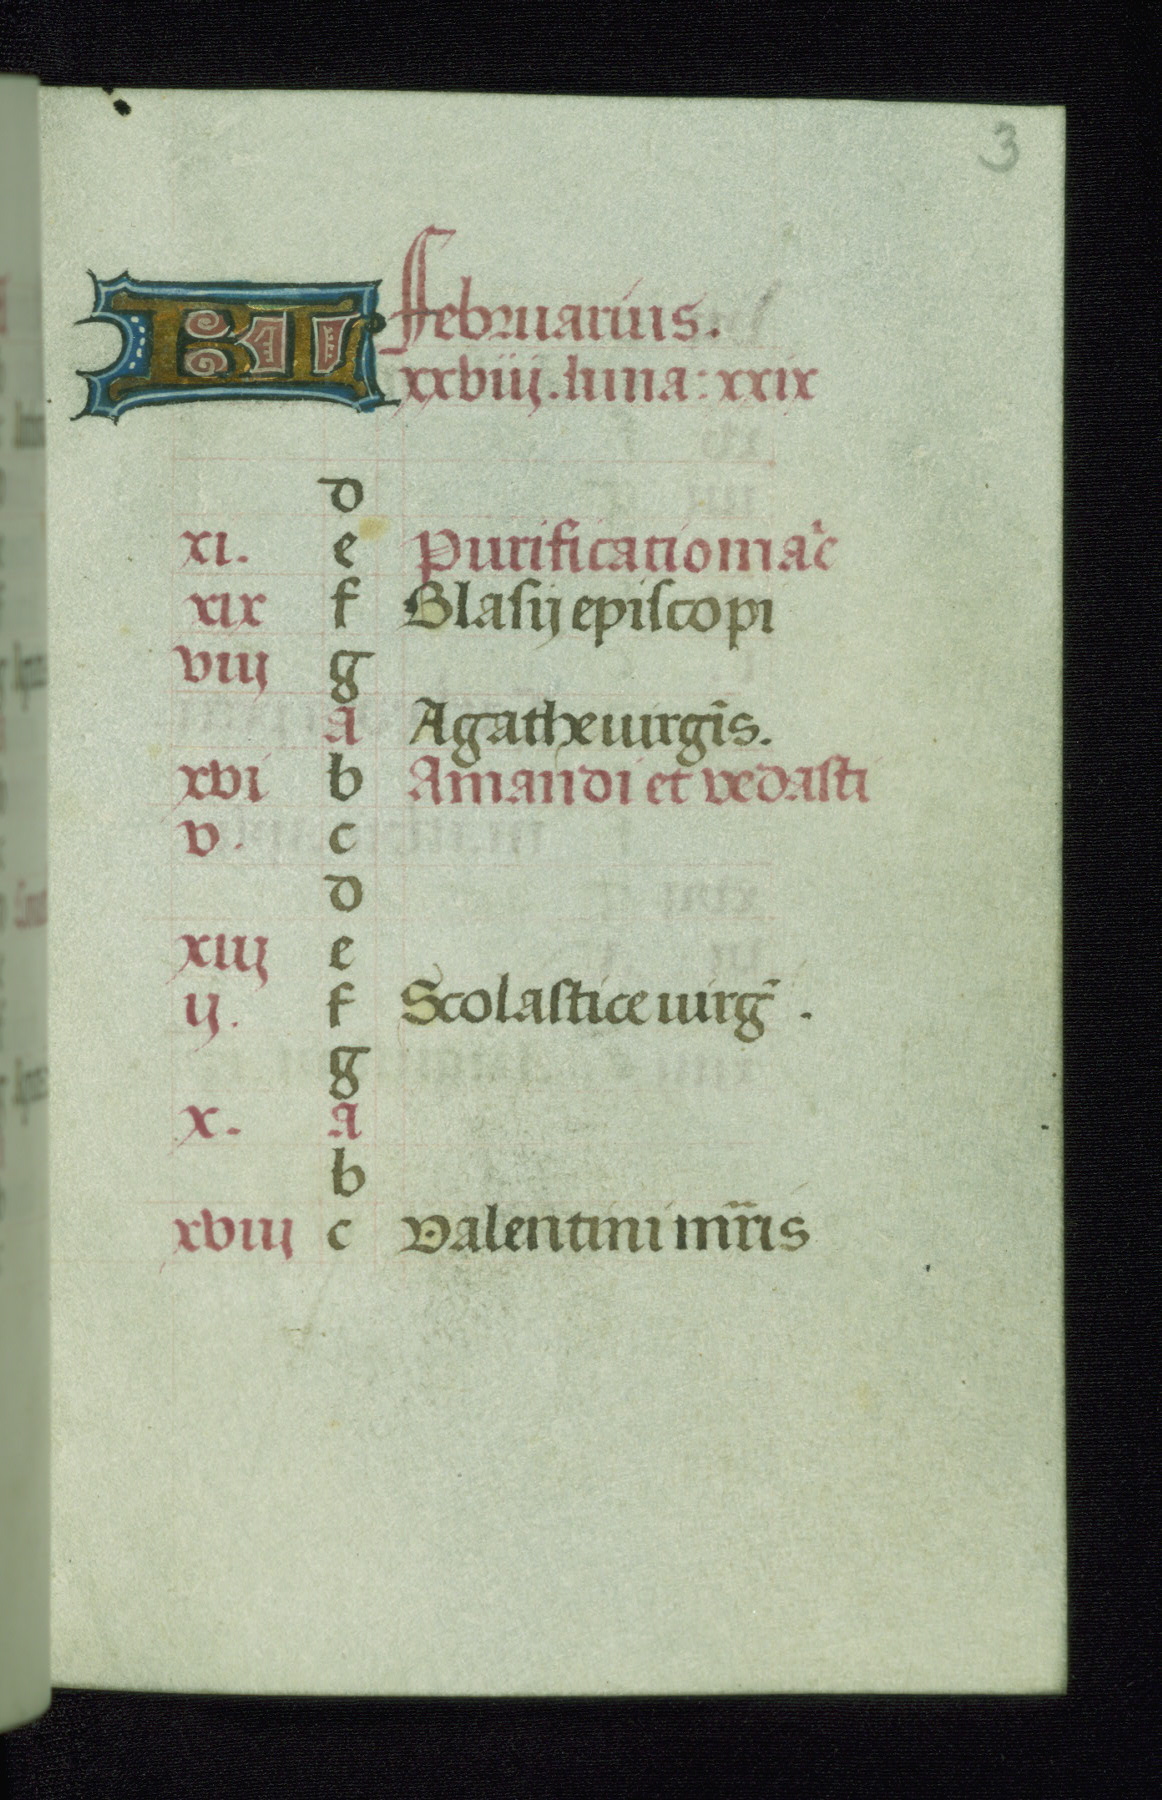 3
KL ffebruarius.
xxviij. luna: xxix
d
xi. e Purificatio maͬe
xix f Blasij episcopi
viij g
A Agathe uirgīs.
xvi b Amandi et vedasti
v. c
d
xiij e
ij. f Scolastice uirg̃.
g
x. A
b
xviij c Valentini mr̄is